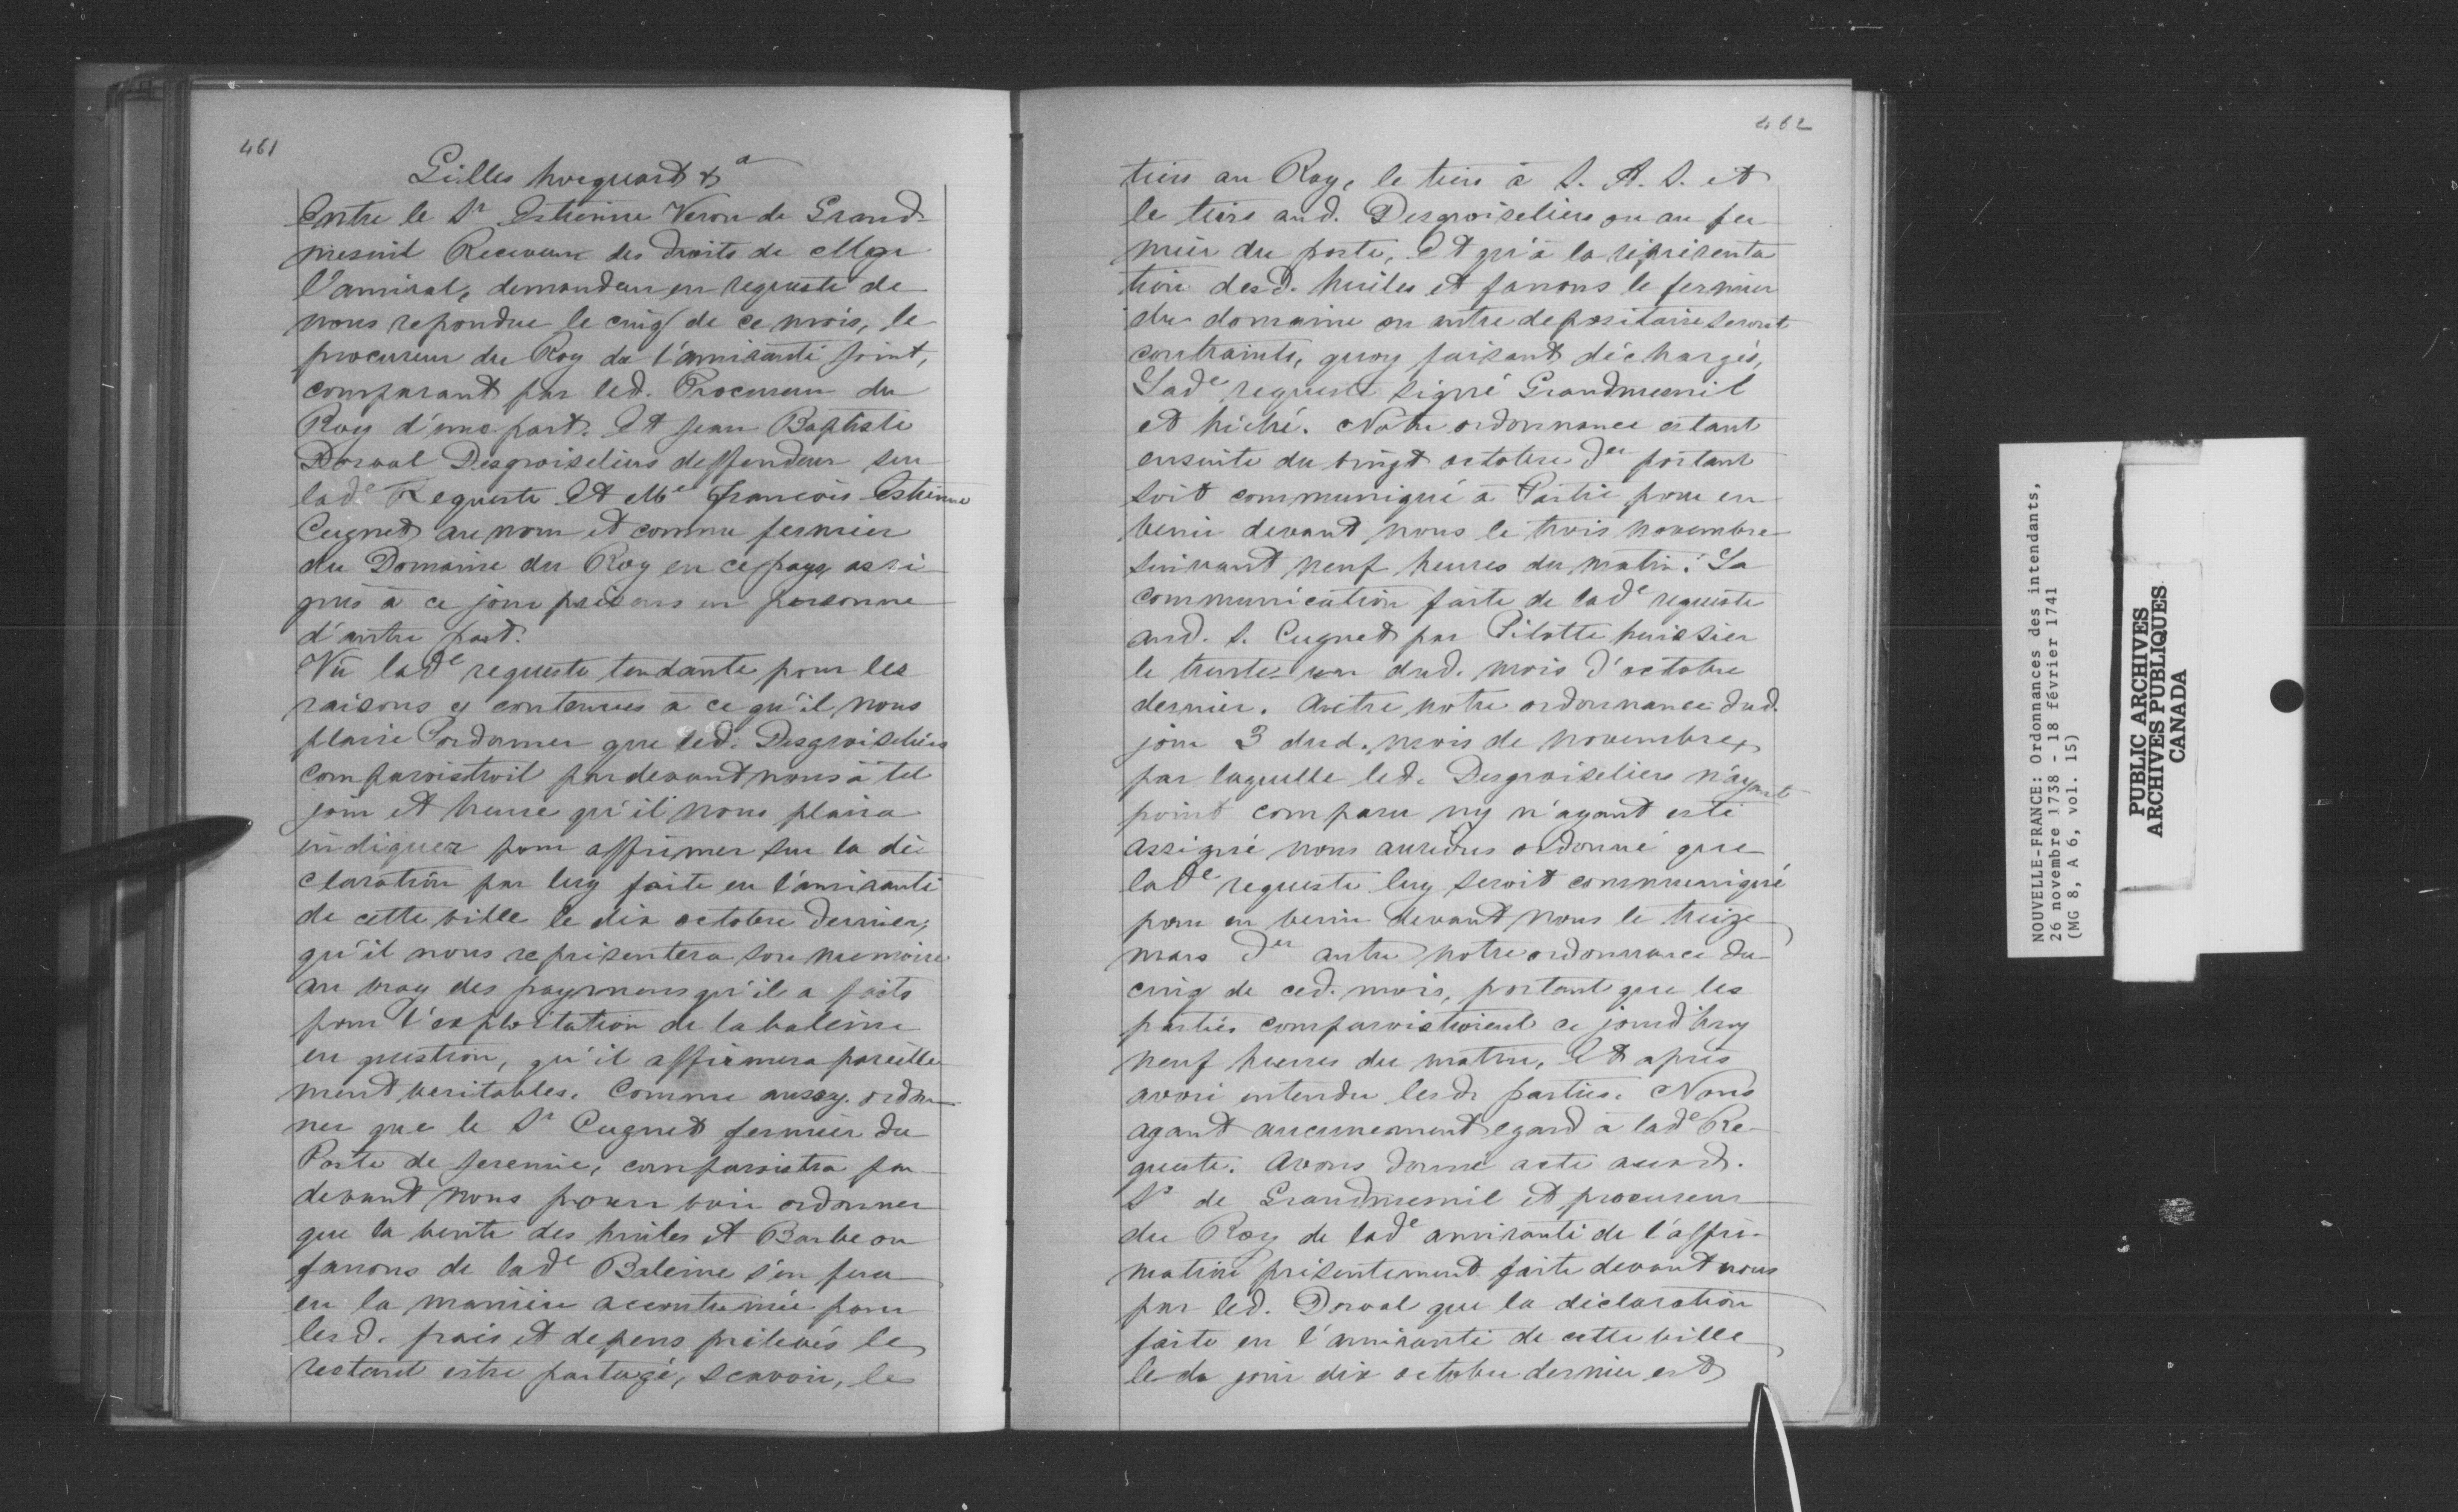 461
Gilles hocquart &a
Entre le Sr Estienne Veron de Grand
mesnil Receveur des droits de Mgr
l'amiral, demandeur en requeste de
nous repondue le cinq de ce mois, le
procureur du Roy de l'amirauté joint,
comparant par led. Procureur du
Roy d'une part. Et Jean Baptiste
Dorval Desgroiseliers deffendeur sur
lade Requeste Et Me françois Estienne
Cugnet au nom et comme fermier
du Domaine du Roy en ce pays assi
gnés à ce jour présens en personne
d'autre part.
Vû lade requeste tendante pour les
raisons y contenues à ce qu'il nous
plaise ordonner que led. Desgroiseliers
comparoistroit pardevant nous à tel
jour et heure qu'il nous plaira
indiquer pour affirmer sur la dé
claration par luy faite en l'amirauté
de cette ville le dix octobre dernier,
qu'il nous représentera son memoire
au vray des paymens qu'il a faits
pour l'exploitation de la baleine
en question, qu'il affirmera pareille
ment veritables. Comme aussy ordon
ner que le Sr Cugnet fermier du
Poste de Jeremie, comparoistra par
devant nous pour voir ordonner
que la vente des huiles et Barbe ou
fanons de lade Baleine s'en fera
en la manière accoutumée pour
lesd. frais et depens prélevés le
restant estre partagé, scavoir, le
462
tiers au Roy, le tiers à S. A. S. et
le tiers aud. Desgroiseliers ou au fer
mier du poste, Et qu'à la réprésenta
tion desd. huiles et fanons le fermier
du domaine ou autre depositaire seront
contraints, quoy faisant déchargés,
Lade requeste signé Grandmesnil
et hiché. Notre ordonnance estant
ensuite du vingt octobre der portant
soit communiqué à Partie pour en
venir devant nous le trois novembre
suivant neuf heures du matin. La
communication faite de lade requeste
aud. S. Cugnet par Pilotte huissier
le trente un dud. mois d'octobre
dernier. Autre notre ordonnance dud.
jour 3 dud. mois de novembre,
par laquelle led. Desgroiseliers n'ayant
point comparu ny n'ayant esté
assigné nous aurions ordonné que
lade requeste luy seroit communiqué
pour en venir devant nous le treize
mars der autre notre ordonnance du
cinq de ced. mois, portant que les
parties comparoistroient ce jourd'huy
neuf heures du matin, Et après
avoir entendu lesd. parties. Nous
ayant aucunement egard à lade Re
queste. Avons donné acte aud.
Sr de Grandmesnil et procureur
du Roy de lade amirauté de l'affir
mation présentement faite devant nous
par led. Dorval que la déclaration
faite en l'amirauté de cette ville
led. jour dix octobre dernier est
NOUVELLE-FRANCE: Ordonnances des intendants,
26 novembre 1738 - 18 février 1741
(MG 8, A 6, vol. 15)
PUBLIC ARCHIVES
ARCHIVES PUBLIQUES
CANADA